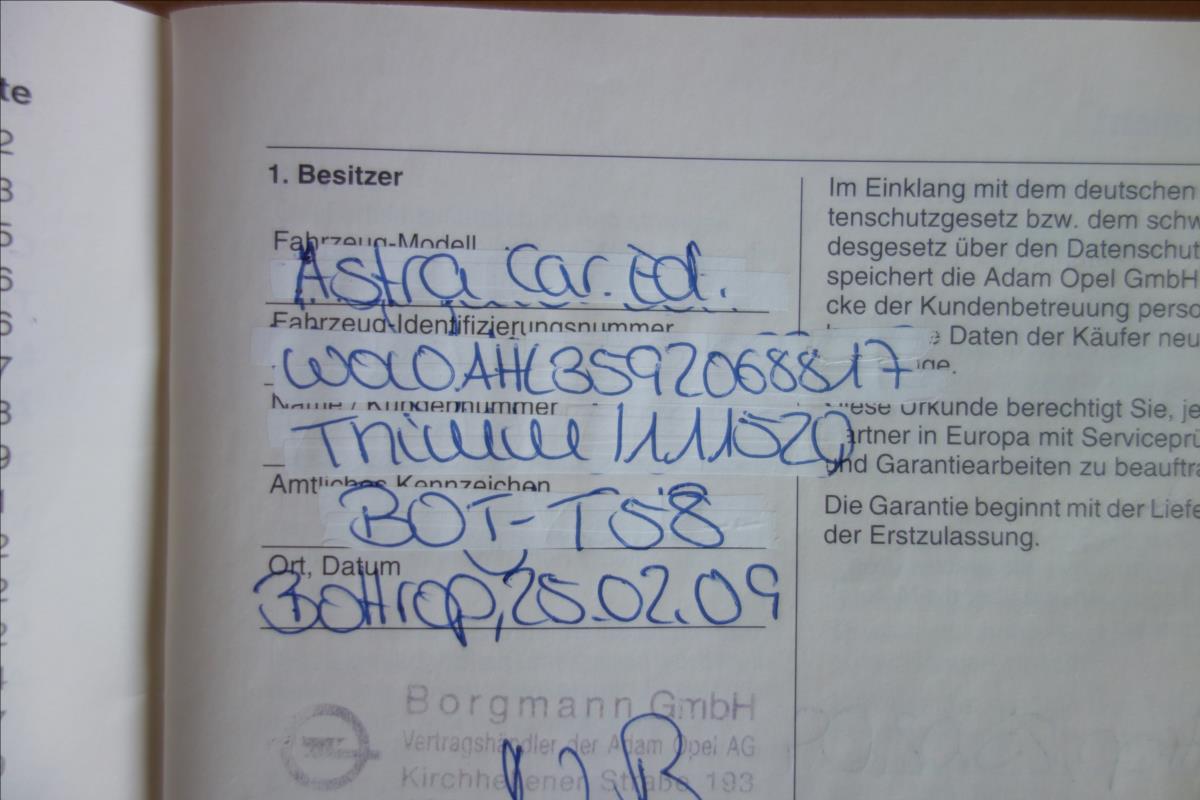 te
2
3
5
6
6
7
8
9
1. Besitzer
Fahrzeug-Modell
Astra Car. Ed.
Fahrzeug-Identifizierungsnummer
W0L0AHL3592068817
Name / Kundennummer
Thimm /111520
Amtliches Kennzeichen
BOT-TS8
Ort, Datum
Bottrop, 25.02.09
Borgmann GmbH
Vertragshändler der Adam Opel AG
Kirchhellener Straße 193
Im Einklang mit dem deutschen
tenschutzgesetz bzw. dem schw
desgesetz über den Datenschut
speichert die Adam Opel GmbH
cke der Kundenbetreuung perso
Daten der Käufer neu
Diese Urkunde berechtigt Sie, je
artner in Europa mit Serviceprü
und Garantiearbeiten zu beauftra
Die Garantie beginnt mit der Liefe
der Erstzulassung.